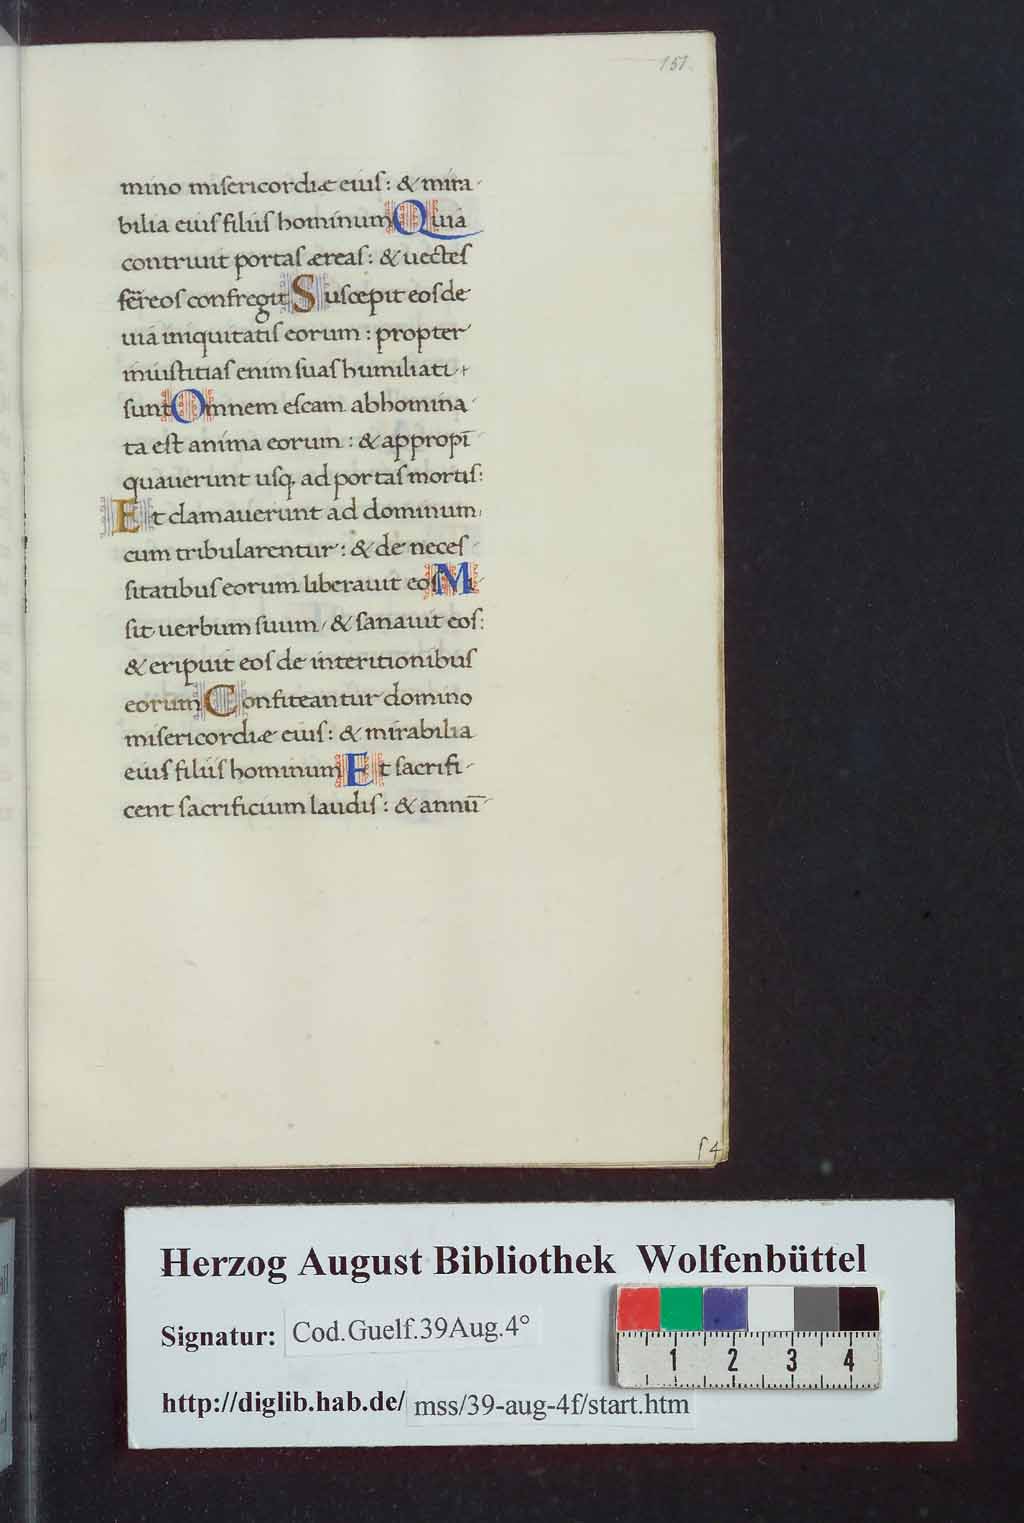 151.
mino miſericordiæ eiuſ: & mira-
bilia eiuſ filiiſ hominum Quia
contriuit portaſ æreaſ: & uecteſ
ferreoſ confregit Suſcepit eoſ de
uia iniquitatiſ eorum: propter
iniuſtitiaſ enim ſuaſ humiliati
ſunt Omnem eſcam abhomina-
ta eſt anima eorum: & appropī-
quauerunt uſq; ad portaſ mortiſ:
Et clamauerunt ad dominum,
cum tribularentur: & de neceſ-
ſitatibuſ eorum liberauit eoſ Mi-
ſit uerbum ſuum, & ſanauit eoſ:
& eripuit eoſ de interitionibuſ
eorum Confiteantur domino
miſericordiæ eiuſ: & mirabilia
eiuſ filiiſ hominum Et ſacrifi-
cent ſacrificium laudiſ: & annū-
ſ 4
Herzog August Bibliothek Wolfenbüttel
Signatur: Cod.Guelf.39Aug.4°
1 2 3 4
http://diglib.hab.de/ mss/39-aug-4f/start.htm